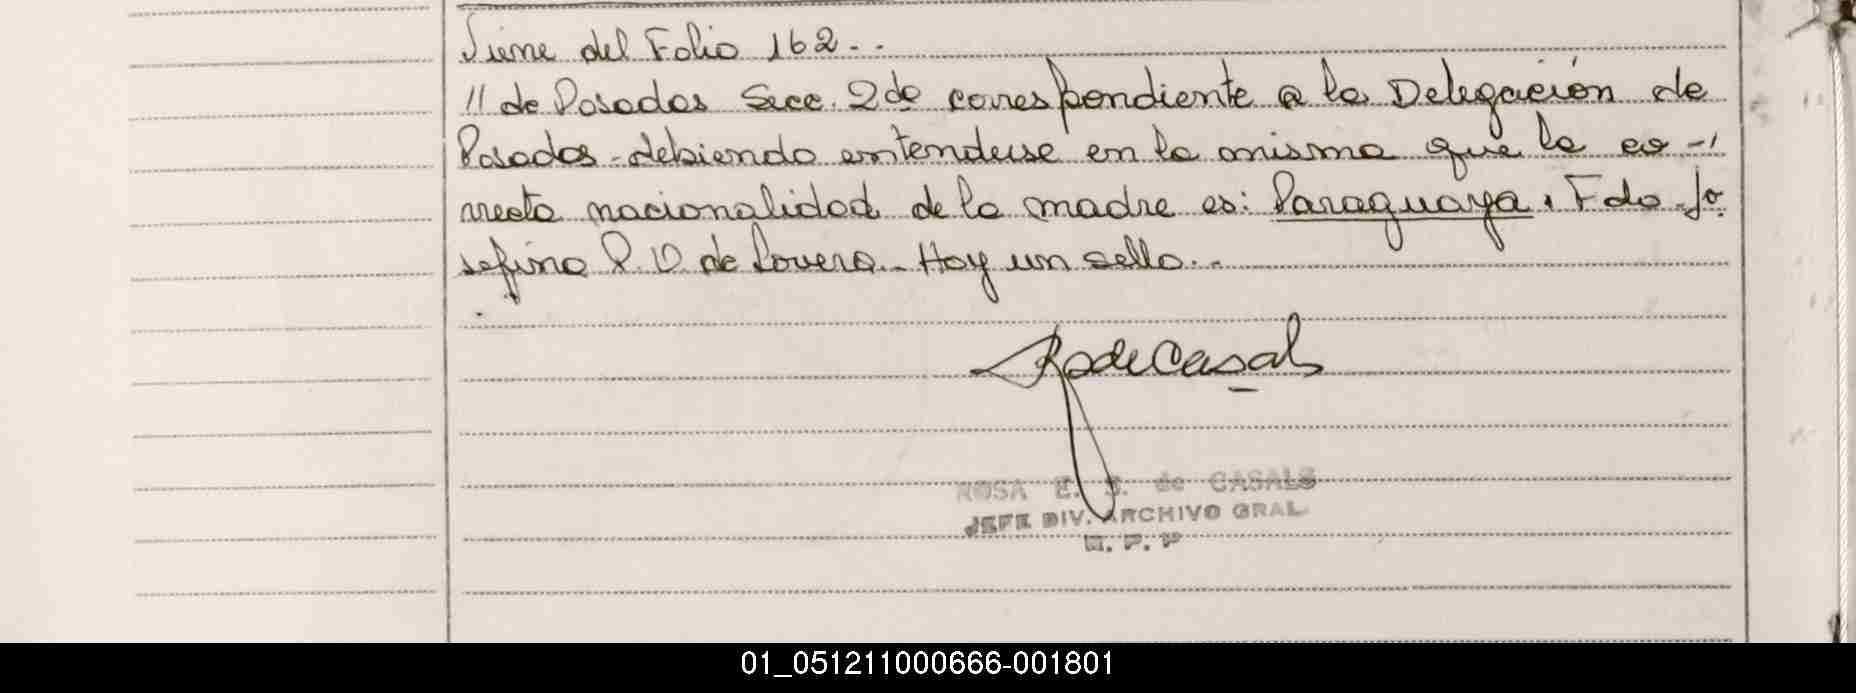 Viene del Folio 162..
// de Posadas Secc. 2da correspondiente a la Delegación de
Posadas - debiendo entenderse en la misma que la co -/
rrecta nacionalidad de la madre es: Paraguaya. Fdo. Jo
sefina P. V. de Lovera.- Hay un sello..
RosdeCasals
ROSA E. S. de CASALS
JEFE DIV. ARCHIVO GRAL.
R. P. P
01_051211000666-001801